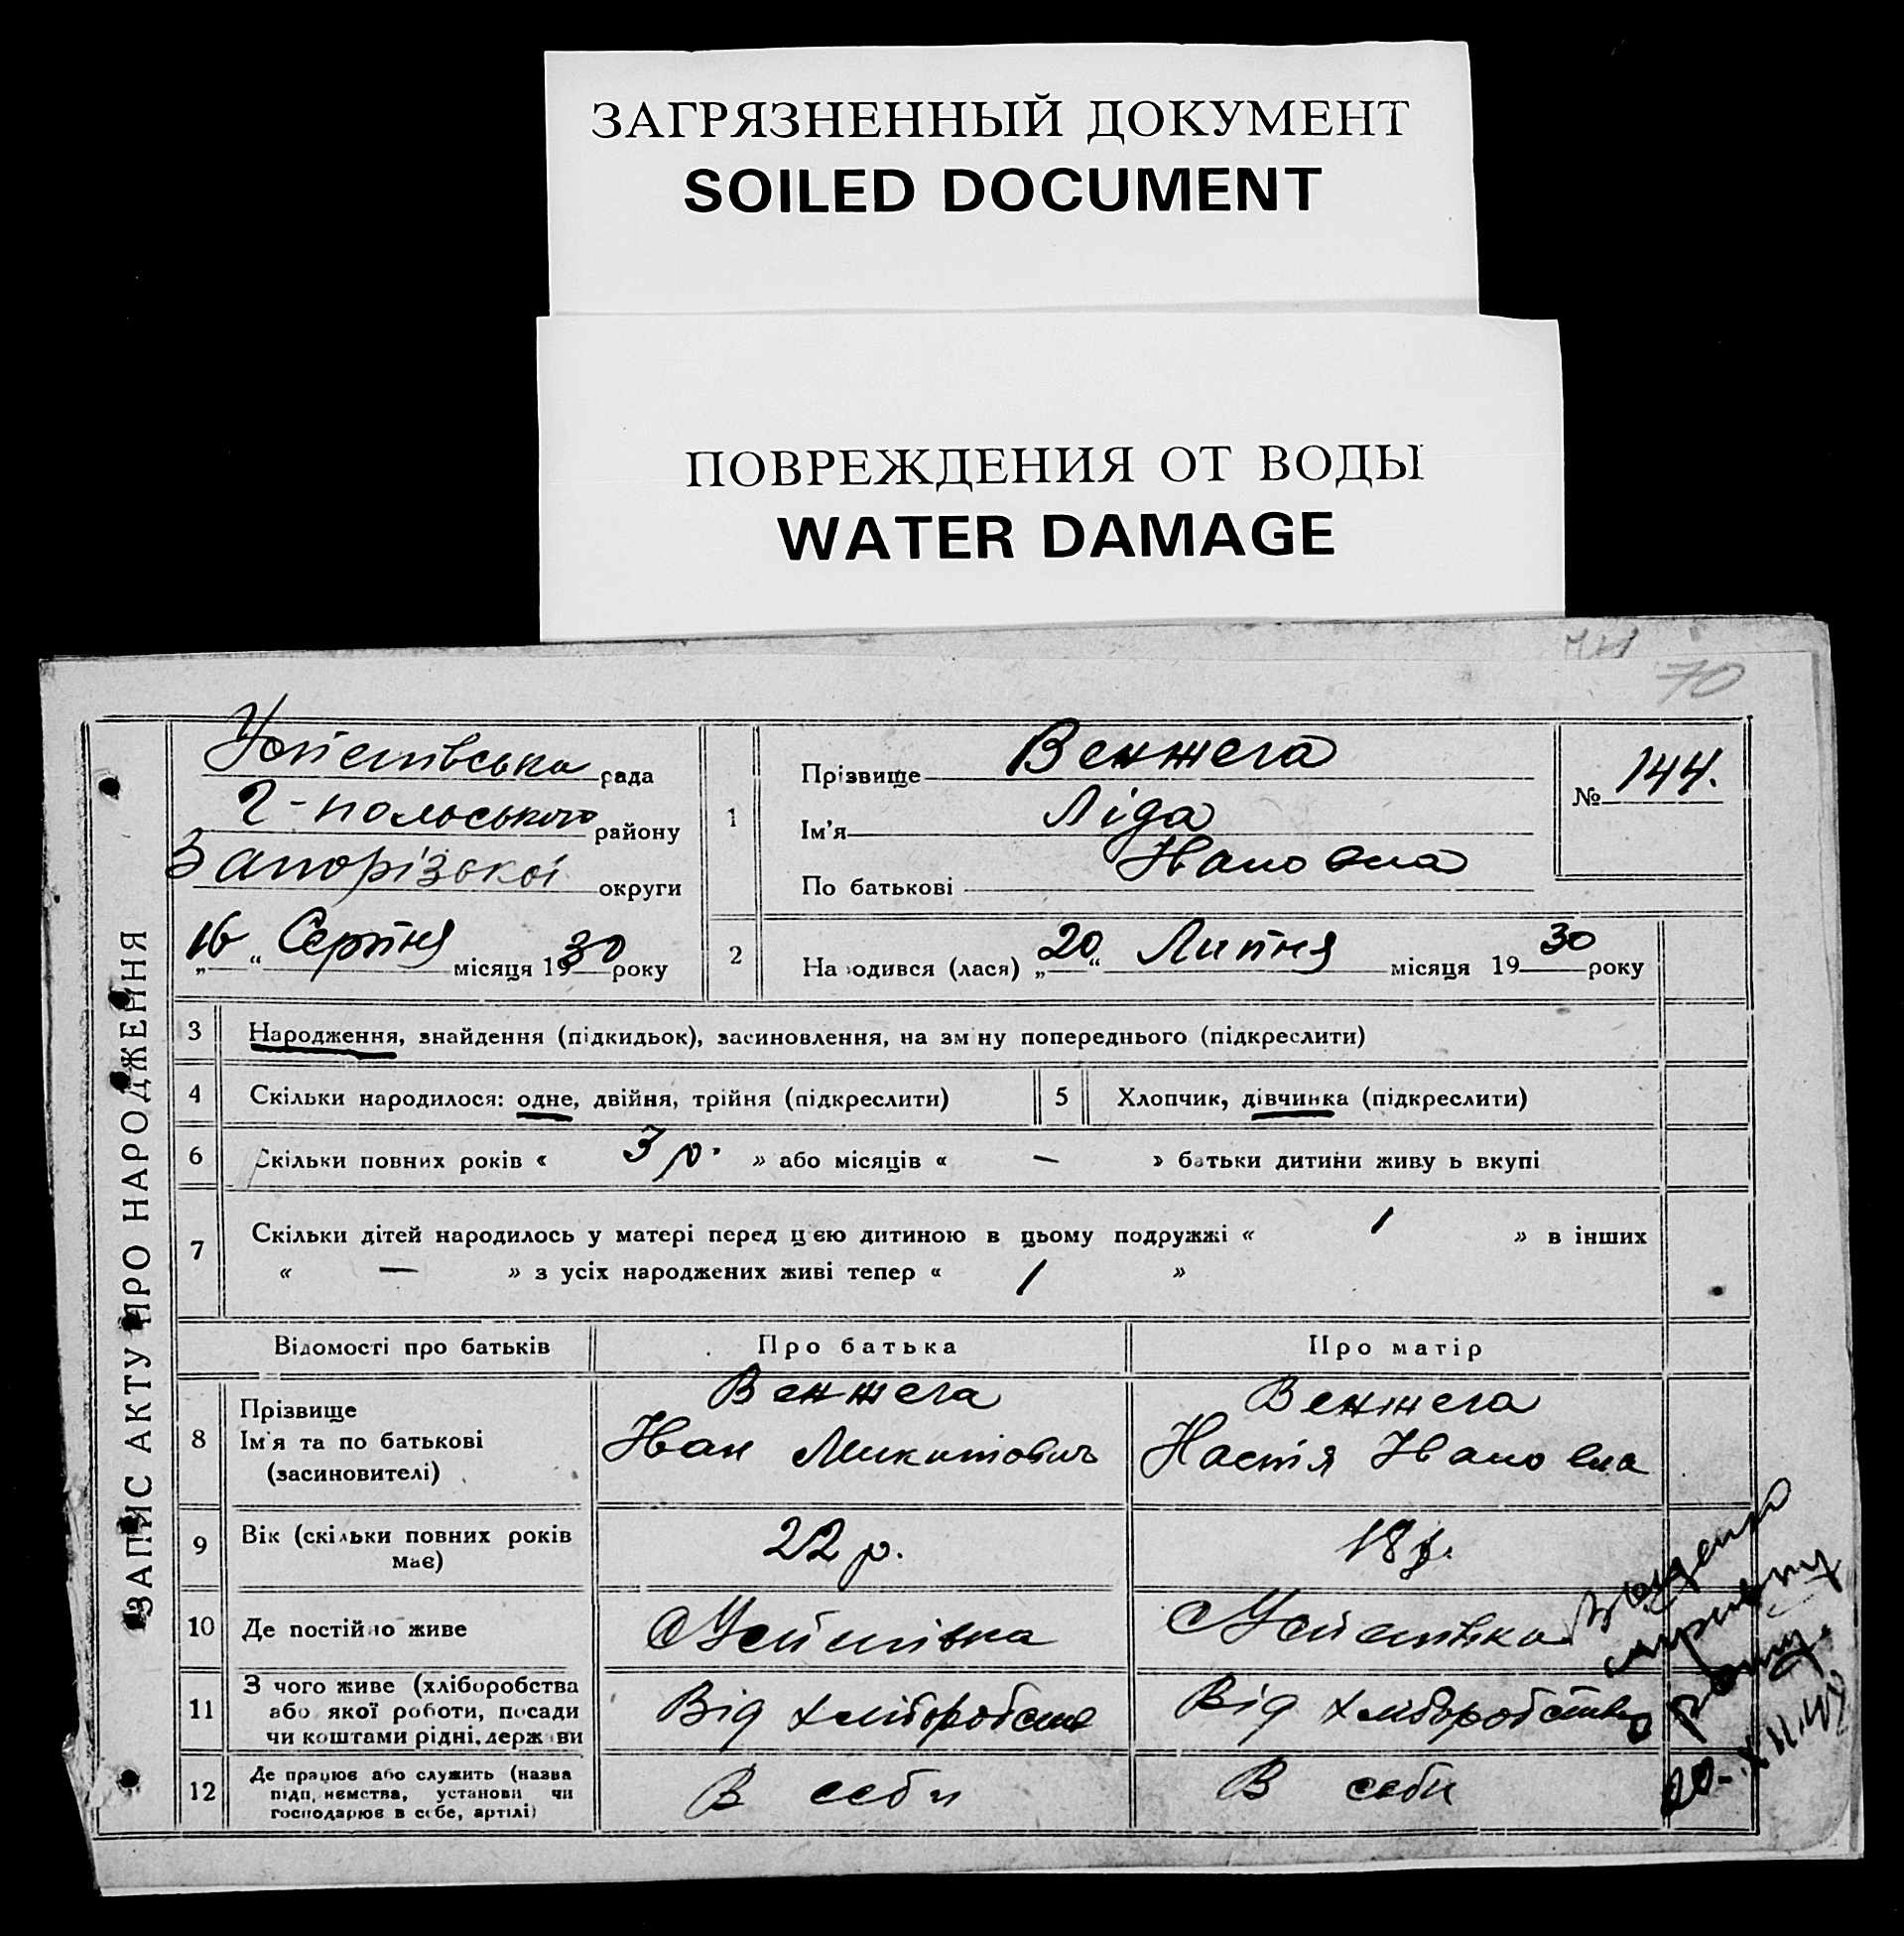 ЗАГРЯЗНЕННЫЙ ДОКУМЕНТ
SOILED DOCUMENT
ПОВРЕЖДЕНИЯ ОТ ВОДЫ
WATER DAMAGE
70
ЗАПИС АКТУ ПРО НАРОДЖЕННЯ
рада
Г-польського району
Запорізької округи
„16“ Серпня місяця 1930 року
1
Прізвище Венжега
Ім'я Ліда
По батькові Івановна
№ 144.
2
Народився (лася) „20“ Липня місяця 1930 року
3 Народження, знайдення (підкидьок), засиновлення, на зміну попереднього (підкреслити)
4 Скільки народилося: одне, двійня, трійня (підкреслити)
5 Хлопчик, дівчинка (підкреслити)
6 Скільки повних років « 3 р. » або місяців « — » батьки дитини живуть вкупі
7 Скільки дітей народилось у матері перед цією дитиною в цьому подружжі « 1 » в інших
« — » з усіх народжених живі тепер « 1 »
Відомості про батьків Про батька Про матір
8 Прізвище
Ім'я та по батькові
(засиновителі)
Венжега
Іван Микитович
Венжега
Настя Івановна
9 Вік (скільки повних років
має)
22 р.
18 р.
10 Де постійно живе
11 З чого живе (хліборобства
або якої роботи, посади
чи коштами рідні, держави
Від хліборобства
Від хліборобства
12 Де працює або служить (назва
підприємства, установи чи
господарює в себе, артілі)
В себи
В себи